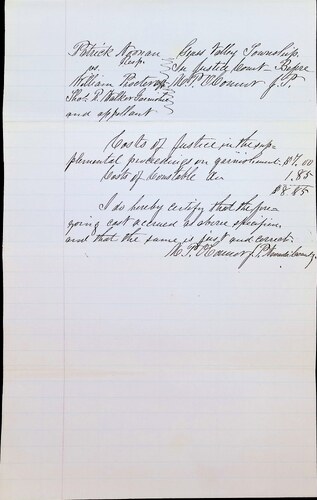 Patrick Noonan Grass Valley Township
Resp. In Justice Court Before
vs. M. P. O'Connor J. P.
William Proctor
Thos. R. Walker Garnishee
and appellant
Costs of Justice in the sup-
plemental proceedings on garnishment $7.00
Costs of Constable in 1.85
$8.85
I do hereby certify that the fore-
going cost accrued as above specified,
and that the same is just and correct.
M. P. O'Connor J. P. Nevada County.